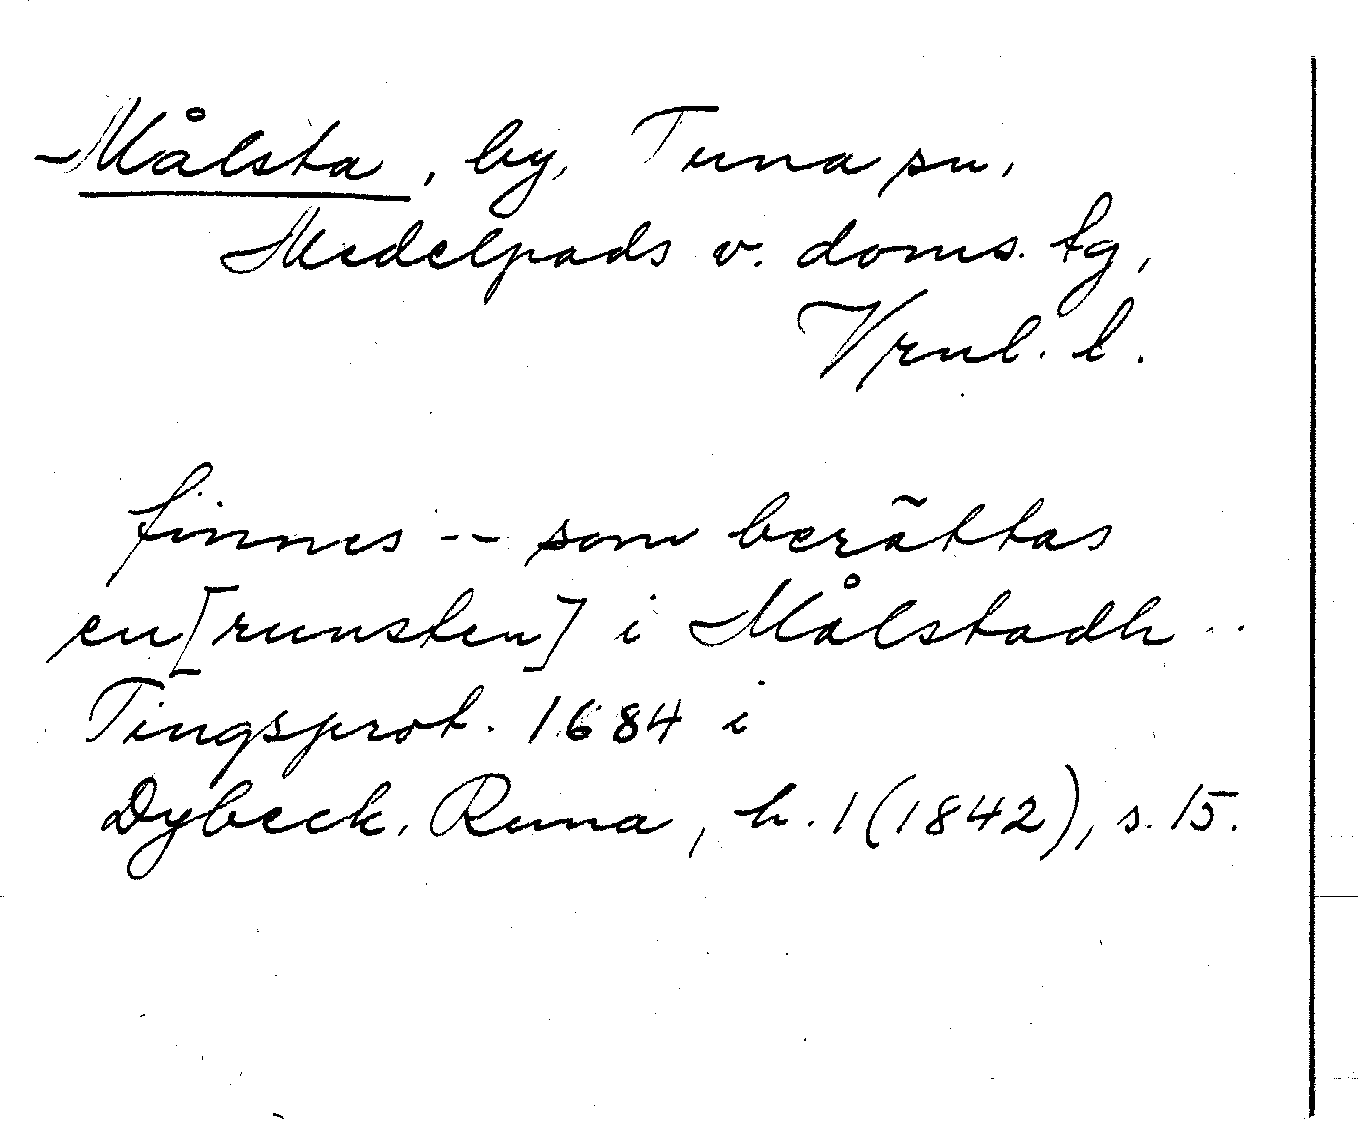 Målsta, by, Tuna sn,
Medelpads v. doms. tg,
Vrnl. l.
finnes -- som berättas
en [runsten] i Målstadh ..
Tingsprot. 1684 i
Dybeck, Runa, h. 1 (1842), s. 15.